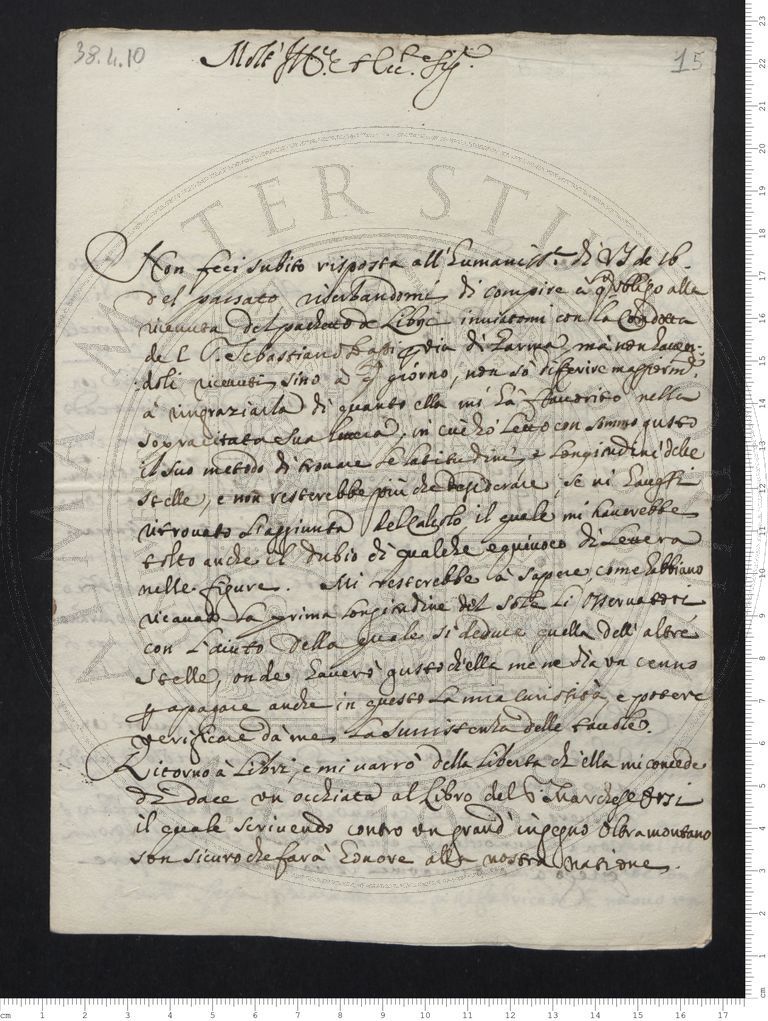 38.4.10
15
Molt' Ill.re et Ecc.te Sig.r
Non feci subito risposta all'Humaniss.a di V S de 16.
del passato riserbandomi di compire a q.to obligo alla
riceuuta del pachetto de Libri inuiatomi con la Condotta
de l S. Sebastiano via di Parma, mà non hauen-
doli riceuuti sino à q.to giorno, non sò differire maggiorm.te
à ringraziarla di quanto ella mi hà fauorito nella
sopracitata sua lettera, in cui hò letto con sommo gusto
il suo metodo di trouare le latitudini, e longitudini delle
stelle, e non resterebbe più che desiderare, se ui hauessi
ritrouato l'aggiunta del Calcolo, il quale mi hauerebbe
tolto anche il dubio di qualche equiuoco di lettera
nelle figure. Mi resterebbe à sapere, come habbiano
ricauato la prima longitudine del Sole li Osseruatori
con l'aiuto della quale si deduce quella dell'altre
stelle, onde hauerò gusto ch'ella me ne dia un cenno
p apagare anche in questo la mia curiosità, e potere
verificare dà me la sussistenza delle tauole.
Ritorno à Libri, e mi uarrò della libertà ch'ella mi concede
di dare un occhiata al Libro del S. Marchese Orsi
il quale scriuendo contro un grand'ingegno oltramontano
son sicuro che farà honore alla nostra natione.